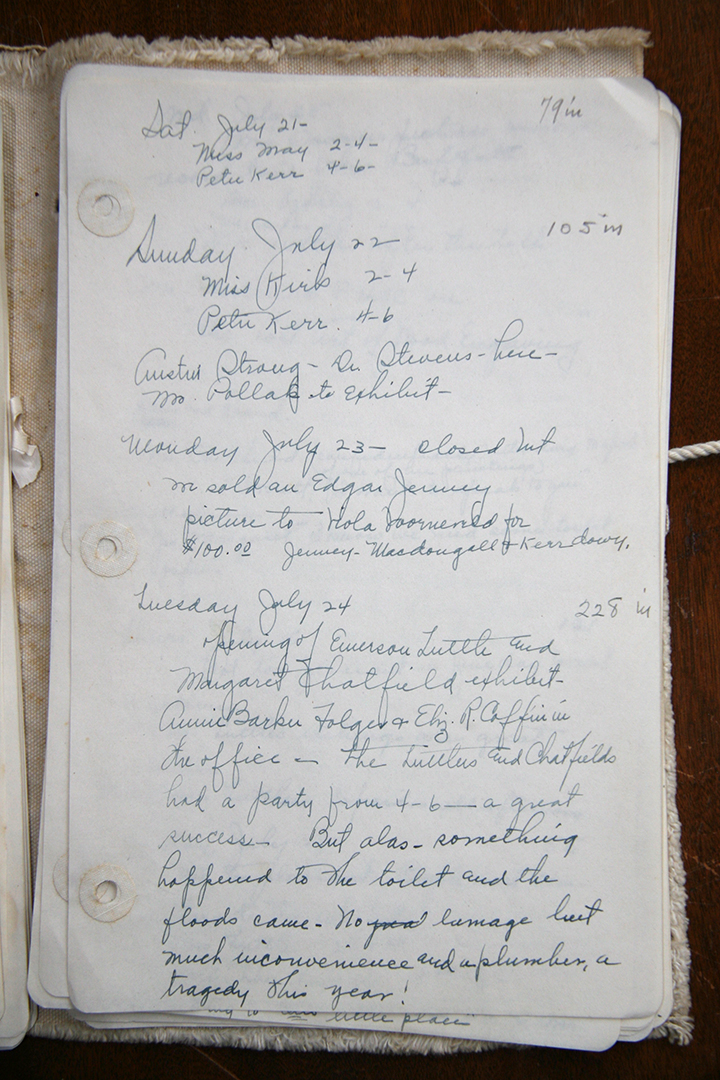 Sat. July 21- 79 in
Miss May 2-4-
Peter Kerr 4-6-
Sunday July 22 105 in
Miss 2-4
Peter Kerr. 4-6
Austin Strong - Dr. Stevens - here -
Mr. Pollak to exhibit -
Monday July 23 - closed but
sold an Edgar Jenney
picture to for
$100.00 Jenney - Macdougall & Kerr down.
Tuesday July 24 228 in
opening of Emerson Tuttle and
Margaret Chatfield exhibit -
Annie Barker Folger & Eliz. R. Coffin in
the office - The Tuttles and Chatfields
had a party from 4-6 - a great
success. But alas - something
happened to the toilet and the
floods came - No lumage but
much inconvenience and a plumber, a
tragedy this year!
little place"